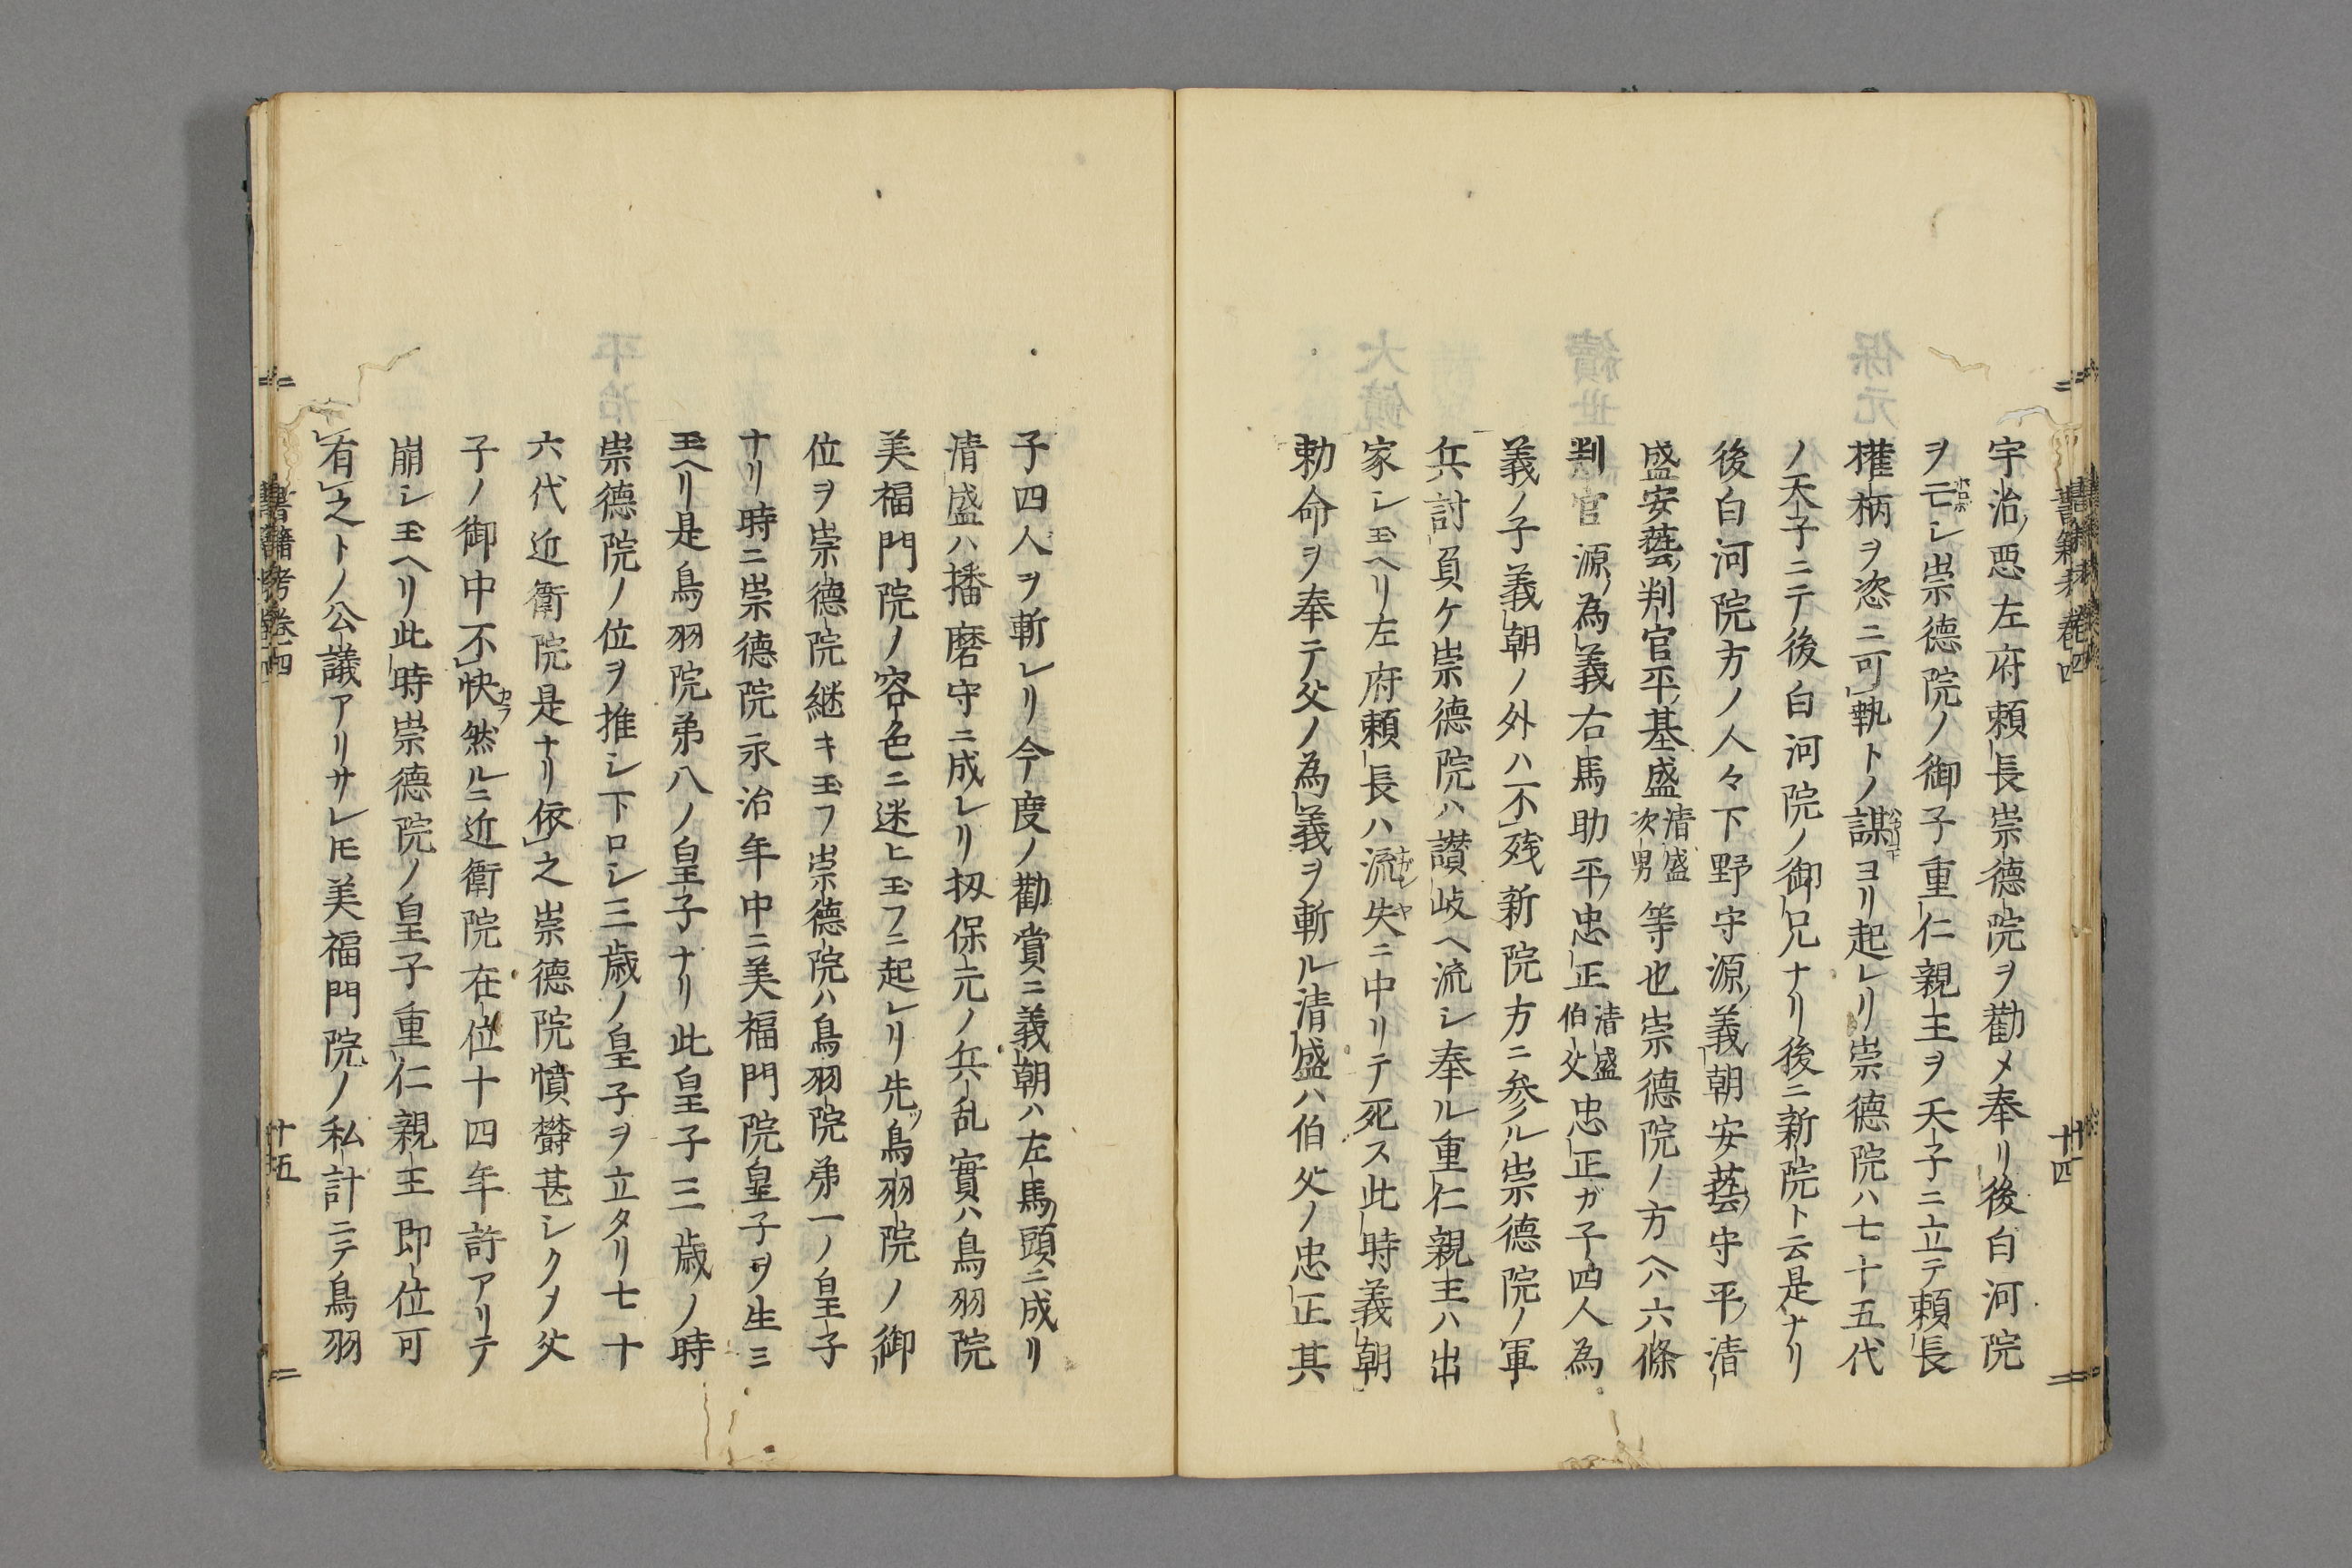 宇治ノ悪左府頼長崇德院ヲ勸メ奉リ後白河院
ヲ亡シ崇德院ノ御子重仁親王ヲ天子ニ立テ頼長
權柄ヲ恣ニ可執トノ謀ヨリ起レリ崇德院ハ七十五代
ノ天子ニテ後白河院ノ御兄ナリ後ニ新院ト云是ナリ
後白河院方ノ人々下野守源ノ義朝安藝ノ守平ノ清
盛安藝判官平ノ基盛清盛次男等也崇德院ノ方ヘハ六條
判官源ノ為義右馬助平ノ忠正清盛伯父忠正ガ子四人為
義ノ子義朝ノ外ハ不残新院方ニ参ル崇德院ノ軍
兵討負ケ崇德院ハ讃岐ヘ流シ奉ル重仁親王ハ出
家シ玉ヘリ左府頼長ハ流失ニ中リテ死ス此時義朝
勅命ヲ奉テ父ノ為義ヲ斬ル清盛ハ伯父ノ忠正其
子四人ヲ斬レリ今度ノ勸賞ニ義朝ハ左馬ノ頭ニ成リ
清盛ハ播磨守ニ成レリ扨保元ノ兵乱實ハ鳥羽院
美福門院ノ容色ニ迷ヒ玉フニ起レリ先ツ鳥羽院ノ御
位ヲ崇德院継キ玉フ崇德院ハ鳥羽院弟一ノ皇子
ナリ時ニ崇德院永治年中ニ美福門院皇子ヲ生ミ
玉ヘリ是鳥羽院弟八ノ皇子ナリ此皇子三歳ノ時
崇德院ノ位ヲ推シ下ロシ三歳ノ皇子ヲ立タリ七十
六代近衛院是ナリ依之崇德院憤欝甚シクメ父
子ノ御中不快然ルニ近衛院在位十四年許アリテ
崩シ玉ヘリ此時崇德院ノ皇子重仁親王即位可
有之トノ公議アリサレ𪜈美福門院ノ私計ニテ鳥羽
書籍考卷四
十五
十四